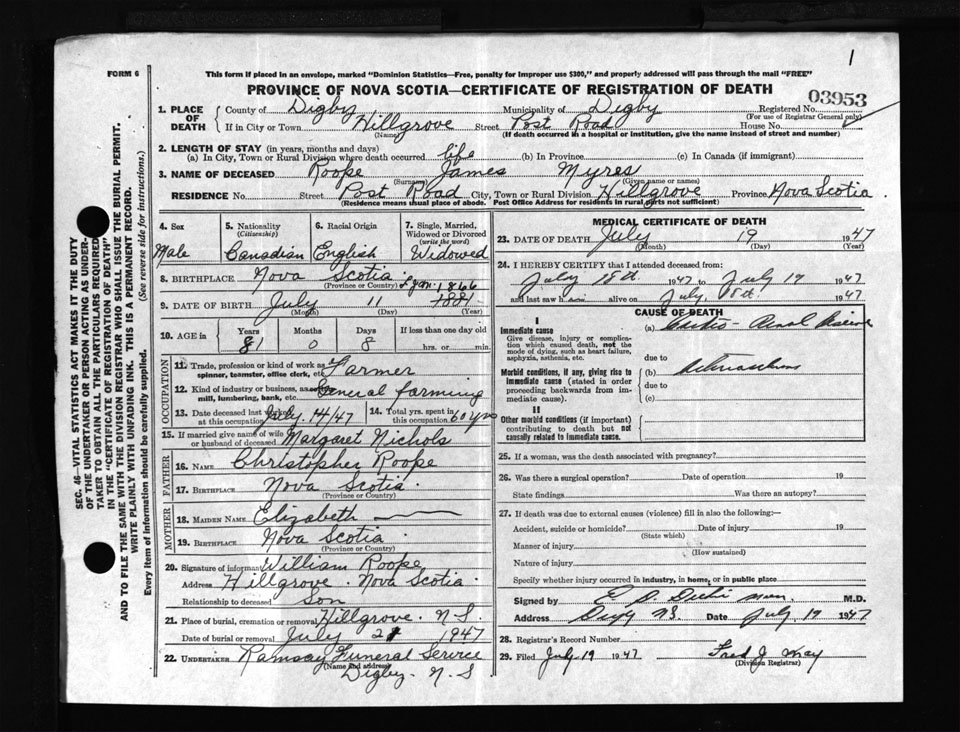 1
FORM 6
This form if placed in an envelope, marked "Dominion Statistics—Free, penalty for improper use $300," and properly addressed will pass through the mail "FREE"
PROVINCE OF NOVA SCOTIA—CERTIFICATE OF REGISTRATION OF DEATH
03953
1. PLACE OF DEATH
County of Digby Municipality of Digby Registered No.
(For use of Registrar General only)
If in City or Town Hillgrove Street Post Road House No.
(Name) (If death occurred in a hospital or institution, give the name instead of street and number)
2. LENGTH OF STAY (in years, months and days)
(a) In City, Town or Rural Division where death occurred life (b) In Province (c) In Canada (if immigrant)
3. NAME OF DECEASED Roope James Myres
(Surname) (Given name or names)
RESIDENCE No. Street Post Road City, Town or Rural Division Hillgrove Province Nova Scotia
(Residence means usual place of abode. Post Office Address for residents in rural parts not sufficient)
4. Sex
Male
5. Nationality (Citizenship)
Canadian
6. Racial Origin
English
7. Single, Married, Widowed or Divorced (write the word)
Widowed
8. BIRTHPLACE Nova Scotia
(Province or Country)
1866
9. DATE OF BIRTH July 11 1881
(Month) (Day) (Year)
10. AGE in
Years Months Days If less than one day old
81 0 8 hrs. or min.
OCCUPATION
11. Trade, profession or kind of work as spinner, teamster, office clerk, etc. Farmer
12. Kind of industry or business, as mill, lumbering, bank, etc. General farming
13. Date deceased last worked at this occupation July 14/47
14. Total yrs. spent in this occupation 60 yrs
15. If married give name of wife or husband of deceased Margaret Nichols
FATHER
16. NAME Christopher Roope
17. BIRTHPLACE Nova Scotia
(Province or Country)
MOTHER
18. MAIDEN NAME Elizabeth
19. BIRTHPLACE Nova Scotia
(Province or Country)
20. Signature of informant William Roope
Address Hillgrove. Nova Scotia.
Relationship to deceased Son
21. Place of burial, cremation or removal Hillgrove. N.S.
Date of burial or removal July 21 1947
22. UNDERTAKER Ramsay Funeral Service
(Name and address)
Digby. N.S
MEDICAL CERTIFICATE OF DEATH
23. DATE OF DEATH July 19 1947
(Month) (Day) (Year)
24. I HEREBY CERTIFY that I attended deceased from:
July 18th. 1947 to July 19 1947
and last saw him alive on July 18th. 1947
CAUSE OF DEATH
I
Immediate cause
Give disease, injury or complication which caused death, not the mode of dying, such as heart failure, asphyxia, asthenia, etc.
(a)
due to
Morbid conditions, if any, giving rise to immediate cause (stated in order proceeding backwards from immediate cause).
(b)
due to
(c)
II
Other morbid conditions (if important) contributing to death but not causally related to immediate cause.
25. If a woman, was the death associated with pregnancy?
26. Was there a surgical operation? Date of operation 19
State findings Was there an autopsy?
27. If death was due to external causes (violence) fill in also the following:—
Accident, suicide or homicide? Date of injury 19
(State which)
Manner of injury
(How sustained)
Nature of injury
Specify whether injury occurred in industry, in home, or in public place
Signed by M.D.
Address Digby NS. Date July 19 1947
28. Registrar's Record Number
29. Filed July 19 1947 Fred J May
(Division Registrar)
SEC. 46—VITAL STATISTICS ACT MAKES IT THE DUTY
OF THE UNDERTAKER OR PERSON ACTING AS UNDERTAKER
TO OBTAIN ALL THE PARTICULARS REQUIRED
IN THE "CERTIFICATE OF REGISTRATION OF DEATH"
AND TO FILE THE SAME WITH THE DIVISION REGISTRAR WHO SHALL ISSUE THE BURIAL PERMIT.
WRITE PLAINLY WITH UNFADING INK. THIS IS A PERMANENT RECORD.
Every item of information should be carefully supplied. (See reverse side for instructions.)